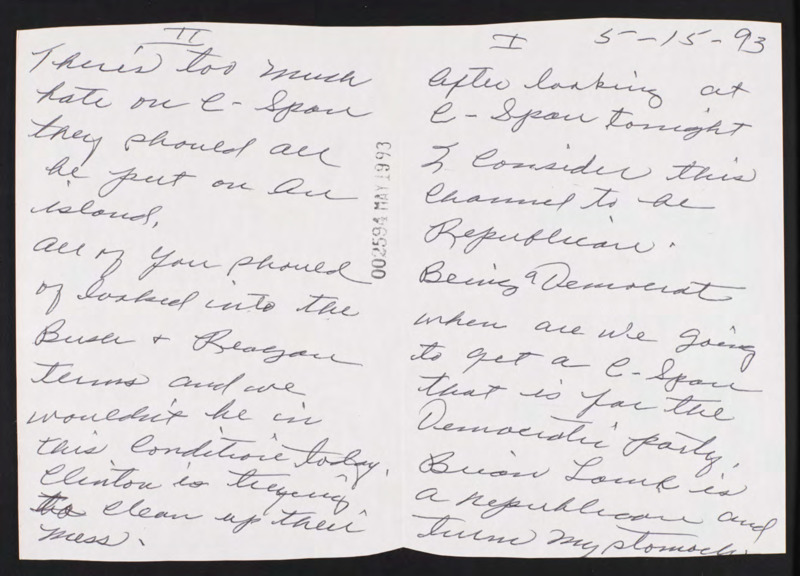 I 5-15-93
After looking at
C-Span tonight
I Consider this
Channel to be
Republican.
Being a Democrat
when are we going
to get a C-Span
that is for the
Democratic party.
Brian Lamb is
a republican and
turns my stomach.
II
There's too much
hate on C-Span
they should all
be put on an
island.
all of you should
of looked into the
Bush + Reagan
terms and we
wouldn't be in
this Condition today.
Clinton is trying
to clean up their
mess.
002594 MAY 1993